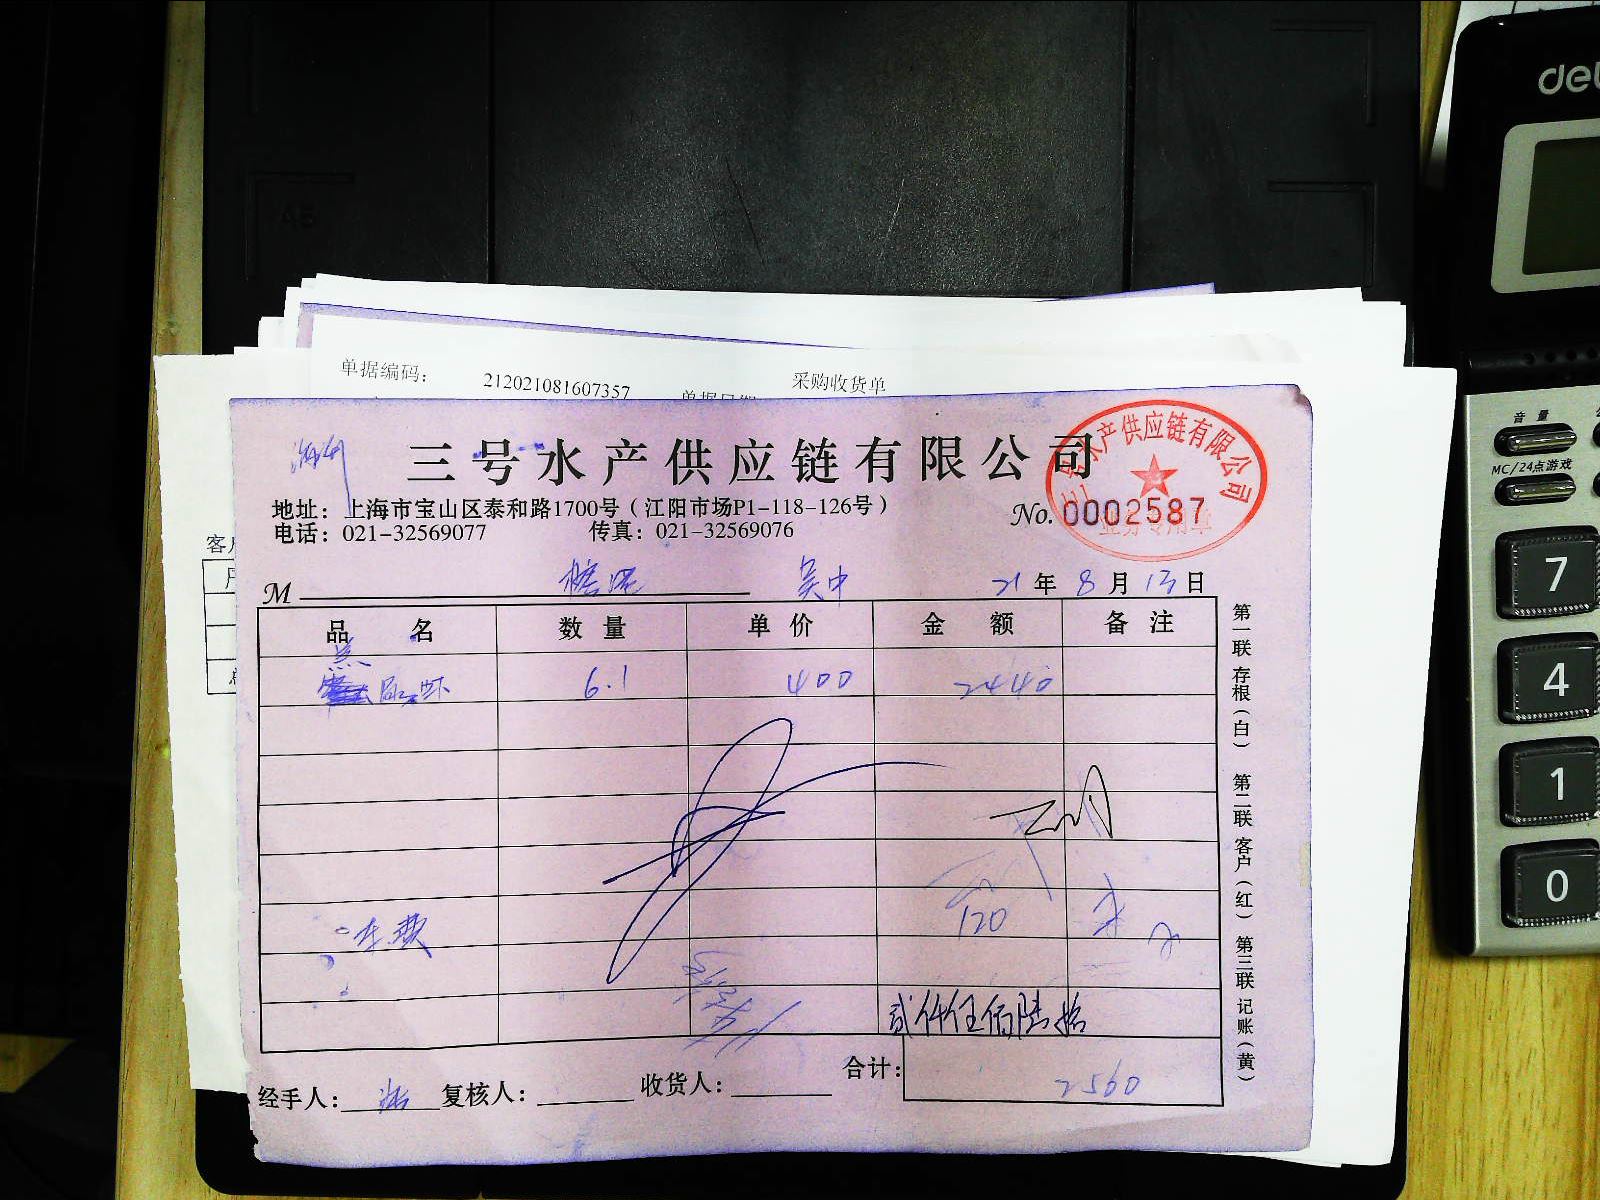 A5
deli
音量
MC/24点游戏
7
4
1
0
单据编码： 212021081607357 采购收货单
三号水产供应链有限公司
三号水产供应链有限公司
业务专用章
地址：上海市宝山区泰和路1700号（江阳市场P1-118-126号）
No. 0002587
电话：021-32569077 传真：021-32569076
M 吴中 21年8月13日
品名 数量 单价 金额 备注
6.1 400 2440
车费 120
贰仟伍佰陆拾
合计： 2560
经手人： 复核人： 收货人：
第一联 存根（白） 第二联 客户（红） 第三联 记账（黄）